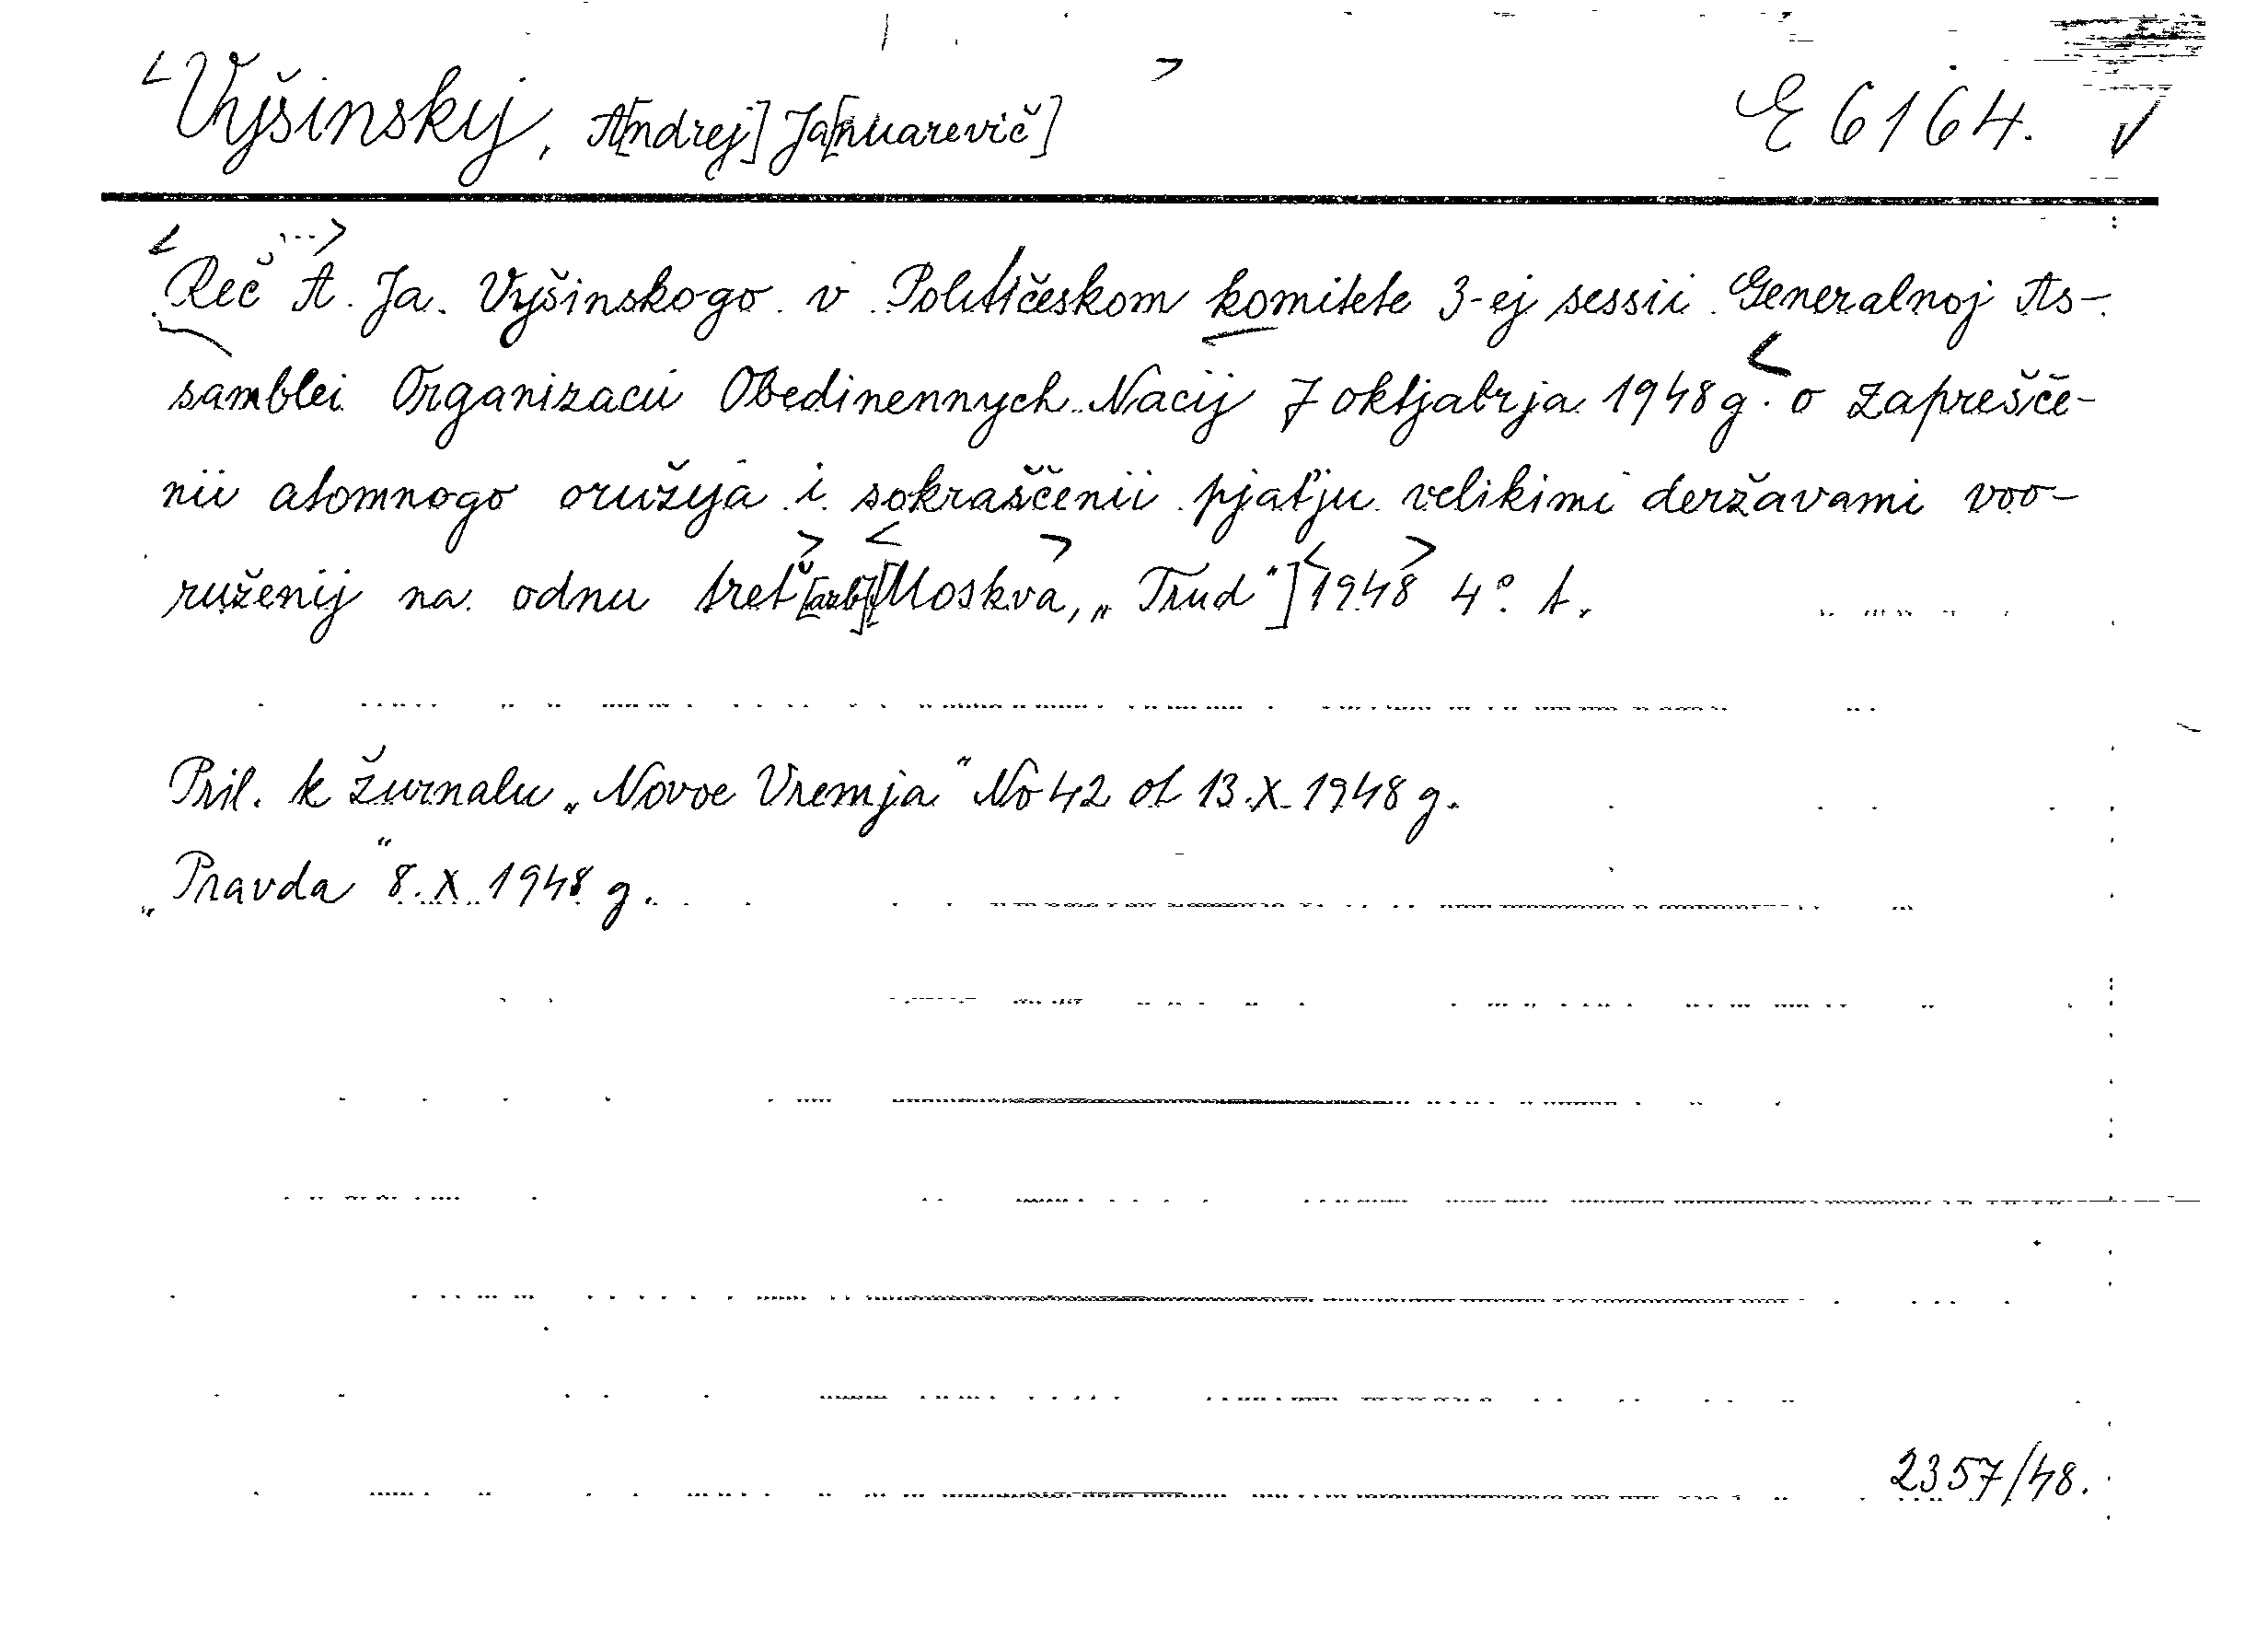 <Vyšinskij, A[ndrej] Ja[nuarevič]> E 6164. ✓
<Reč ...> A. Ja. Vyšinskogo v Političeskom komitete 3-ej sessii Generalnoj As-
samblei Organizacii Obedinennych Nacij 7 oktjabrja 1948 g. < o zaprešče-
nii atomnogo oružija i sokraščenii pjaťju velikimi deržavami voo-
ruženij na odnu treť> [azb] <[Moskva>, „Trud"] <1948> 4° t.
Pril. k žurnalu „Novoe Vremja" No 42 ot 13.X.1948 g.
„Pravda" 8.X.1948 g.
2357/48.